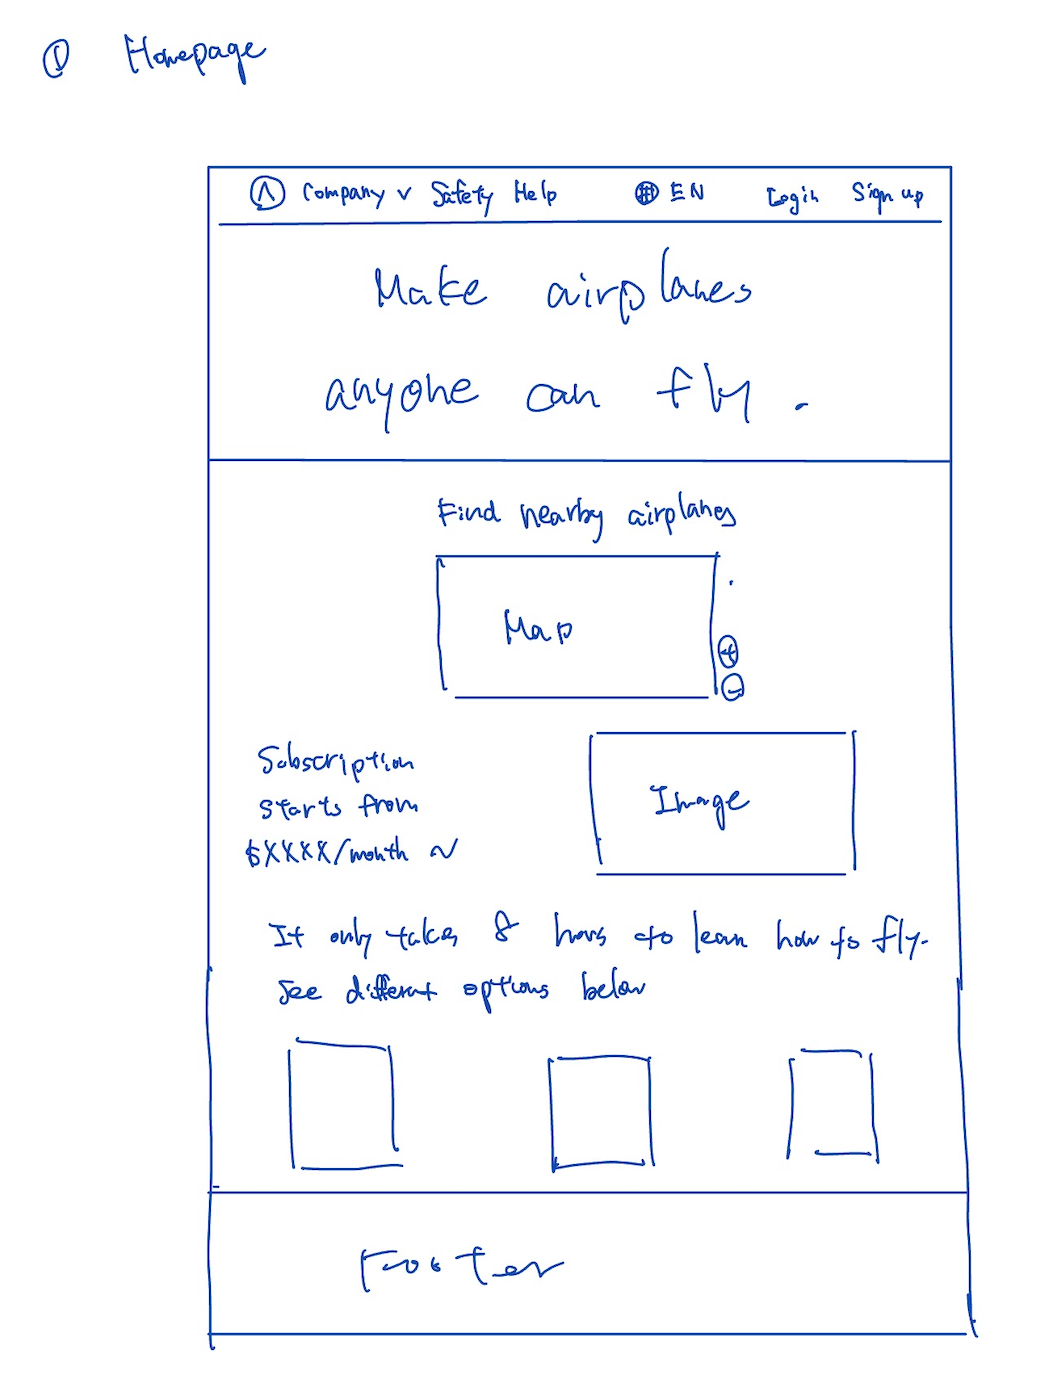 ① Homepage
Company v Safety Help EN Login Sign up
Make airplanes
anyone can fly.
Find nearby airplanes
Map
+
-
Subscription
starts from
$XXXX/month ~
Image
It only takes 8 hours to learn how to fly.
See different options below
Footer